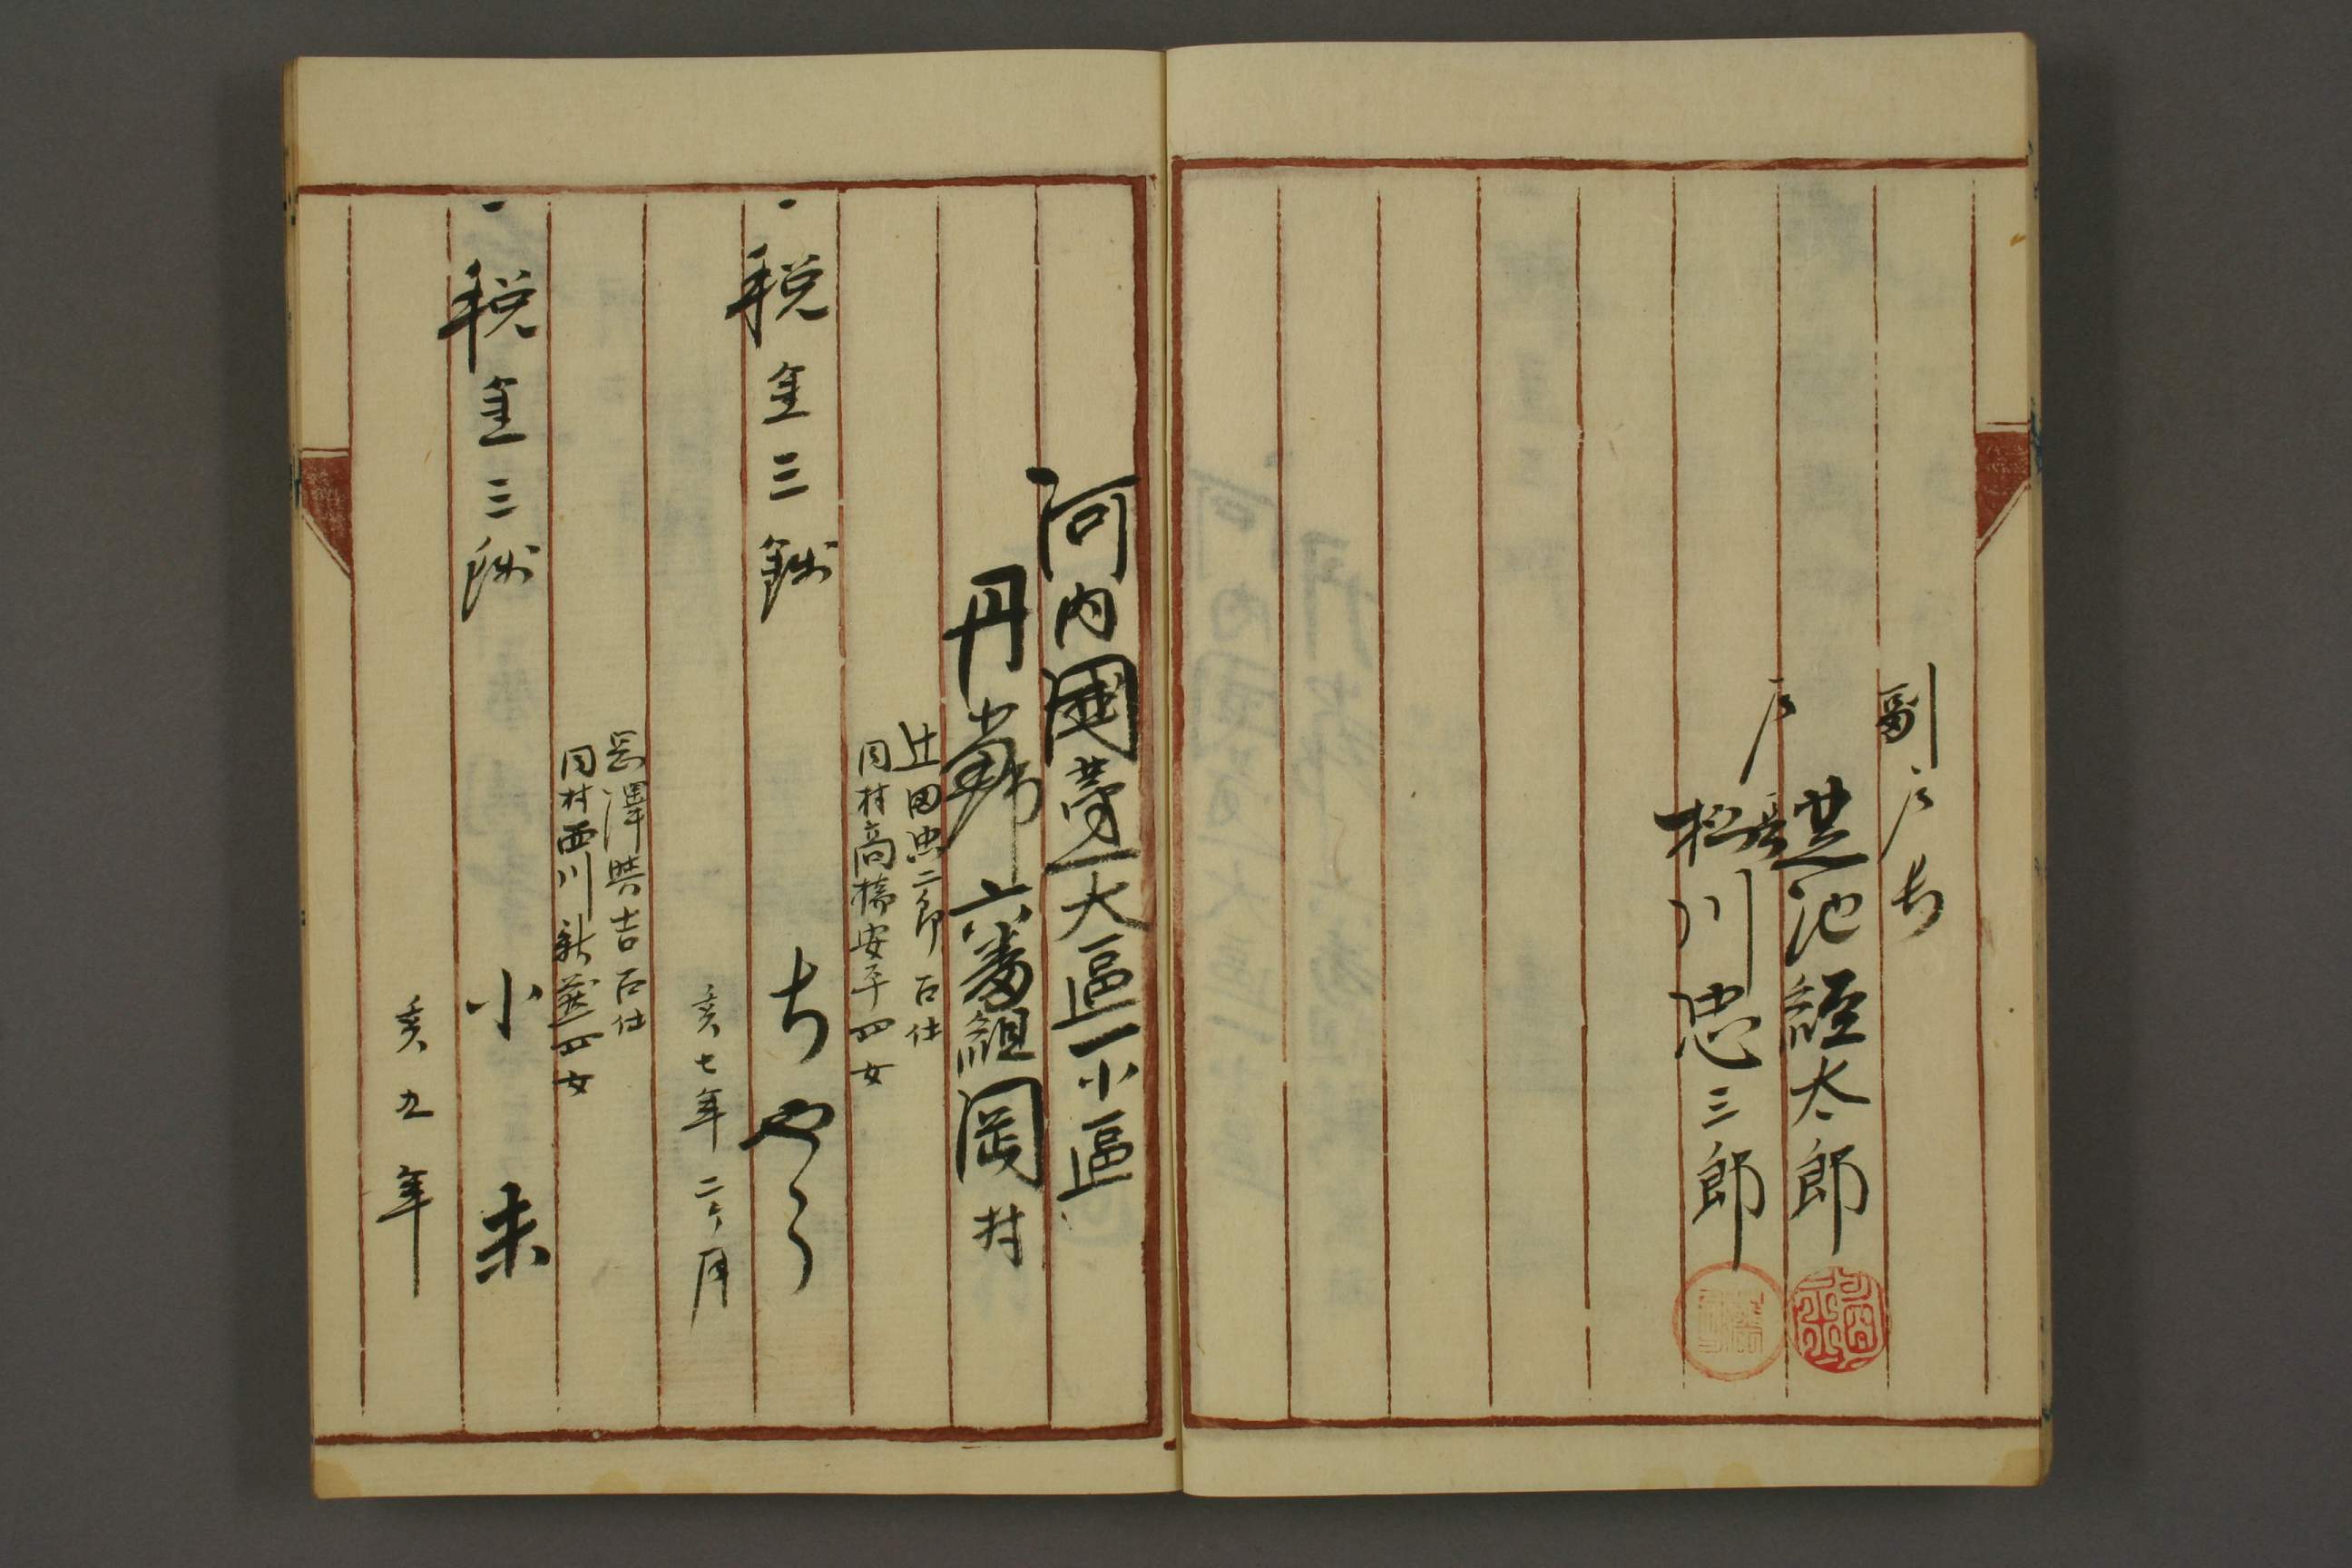 副戸長
芝池經太郎
戸長
松川忠三郎
河内國第一大區一小區
丹南郡六番組岡村
辻田忠二郎召仕
同村高橋安平四女
一税金三銭 ちやう
亥七年二ケ月
澤與吉召仕
同村西川新蔵四女
一税金三銭 小末
亥九年